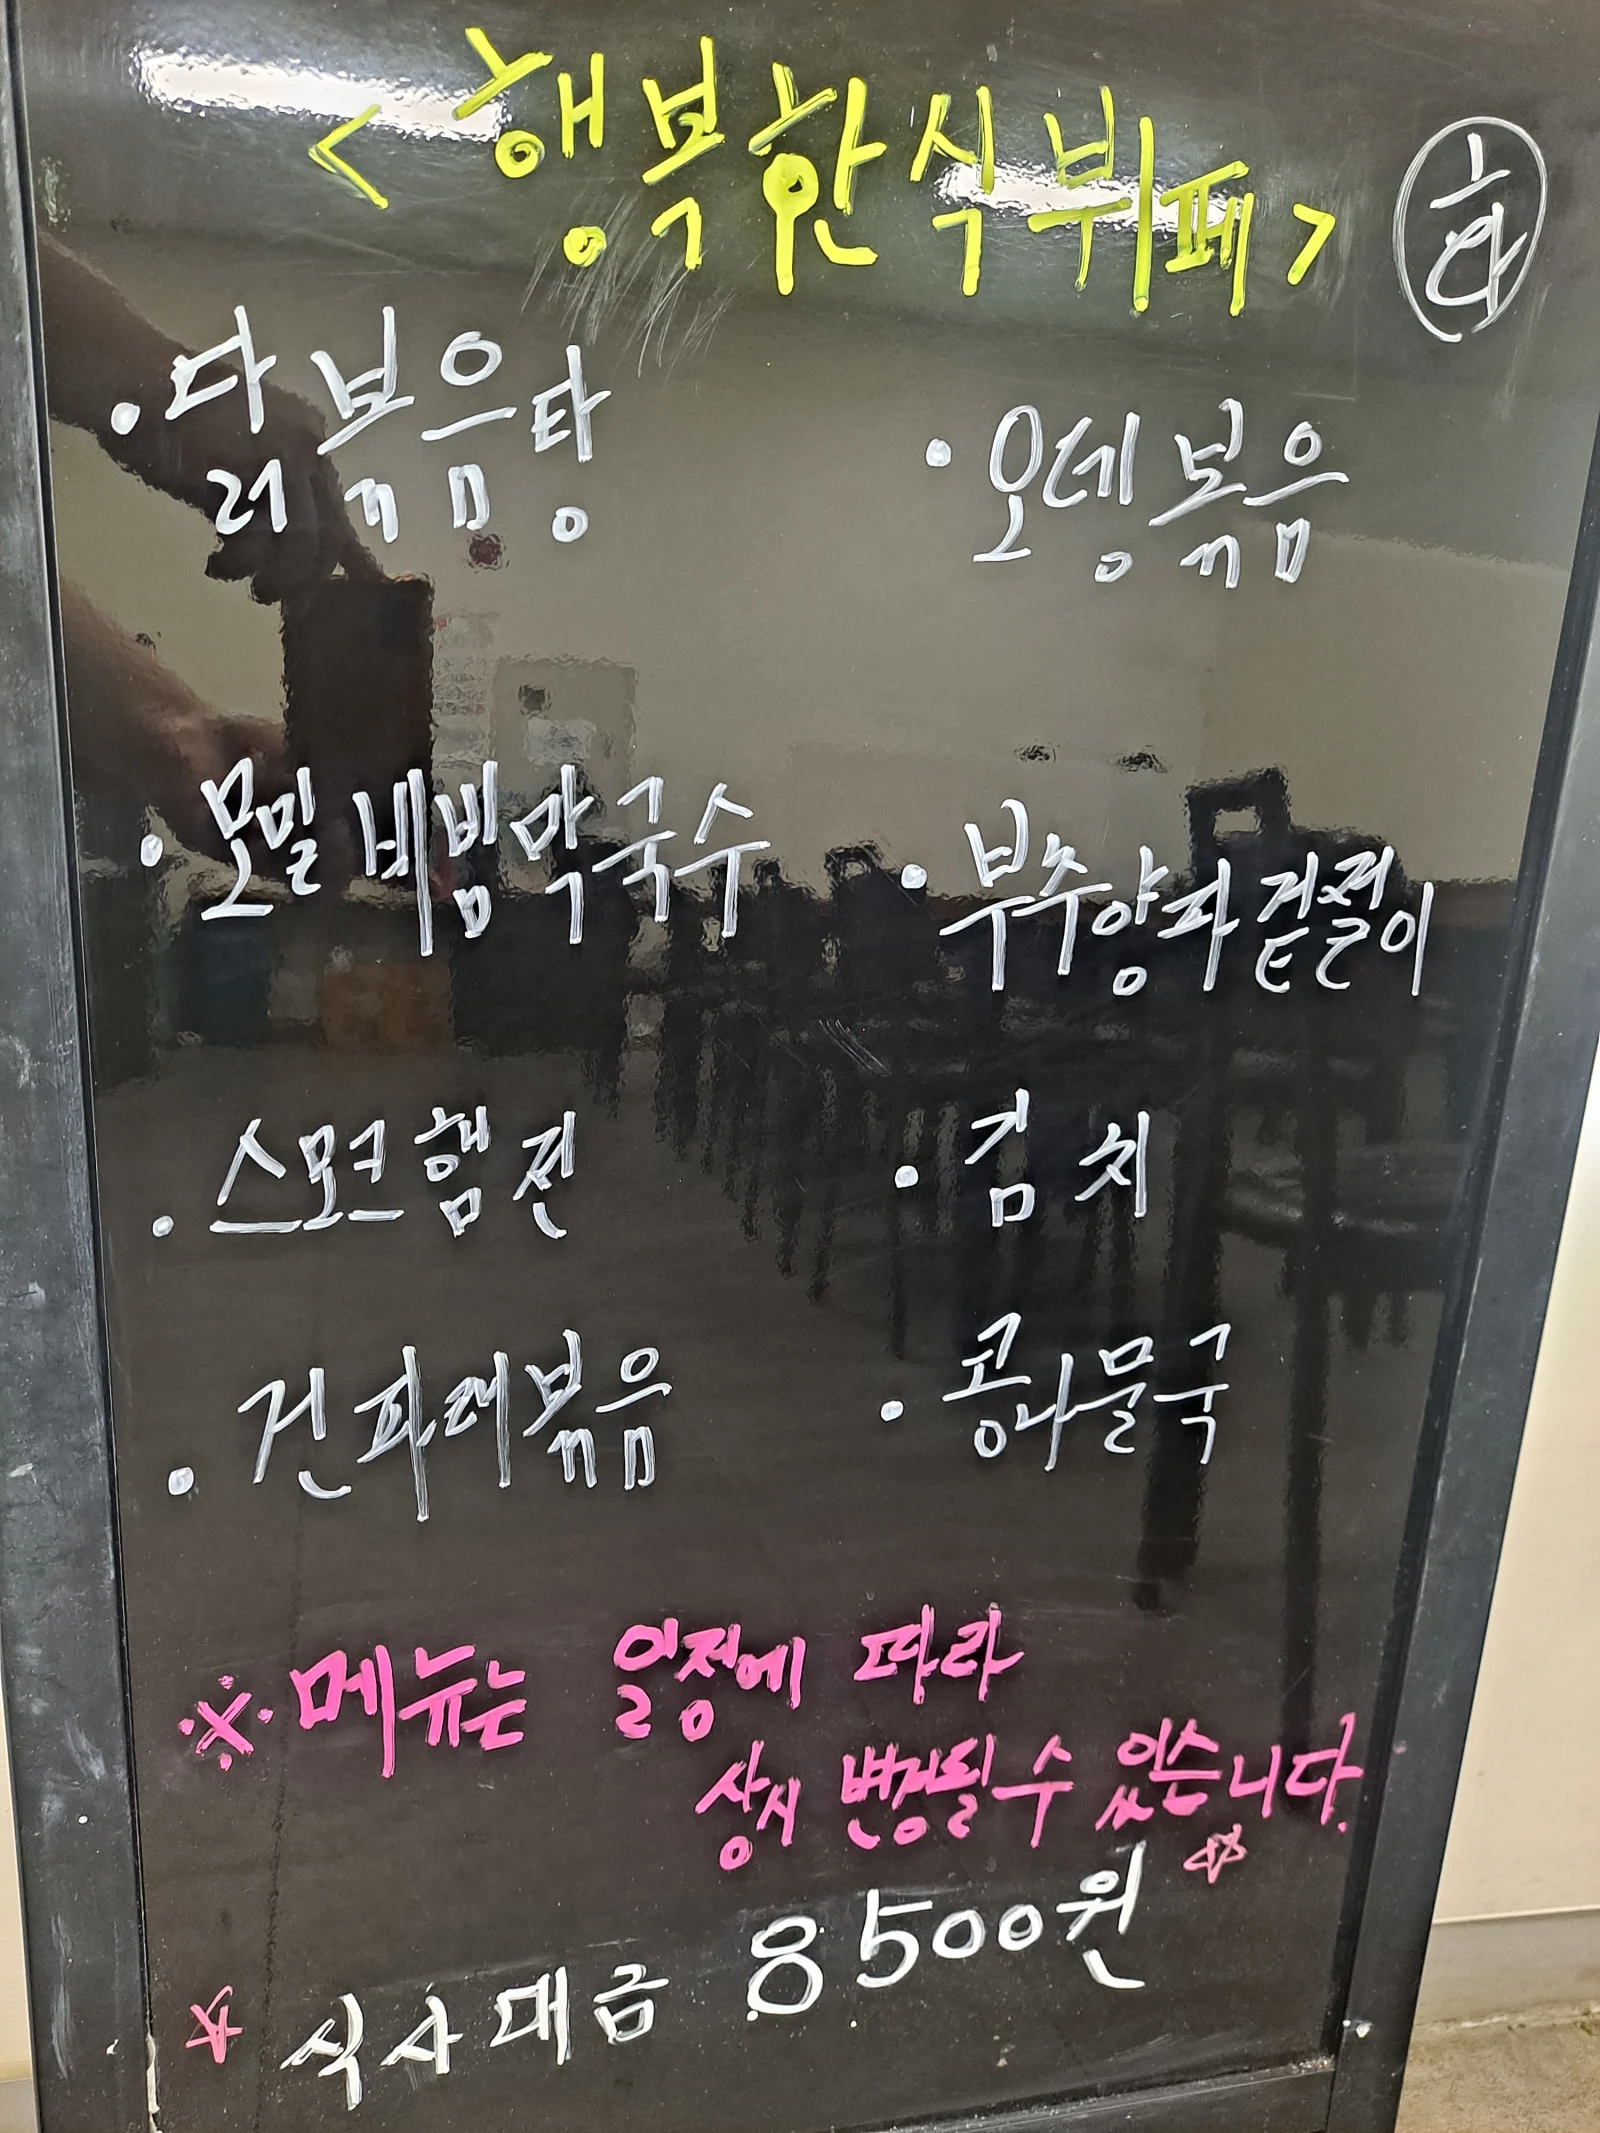 <행복한식뷔페> 화
· 닭볶음탕
· 오뎅볶음
· 모밀비빔막국수
· 부추양파겉절이
· 스모크햄전
· 김치
· 건파래볶음
· 콩나물국
※ 메뉴는 일정에 따라
상시 변경될 수 있습니다.
☆ 식사대금 8500원 ☆